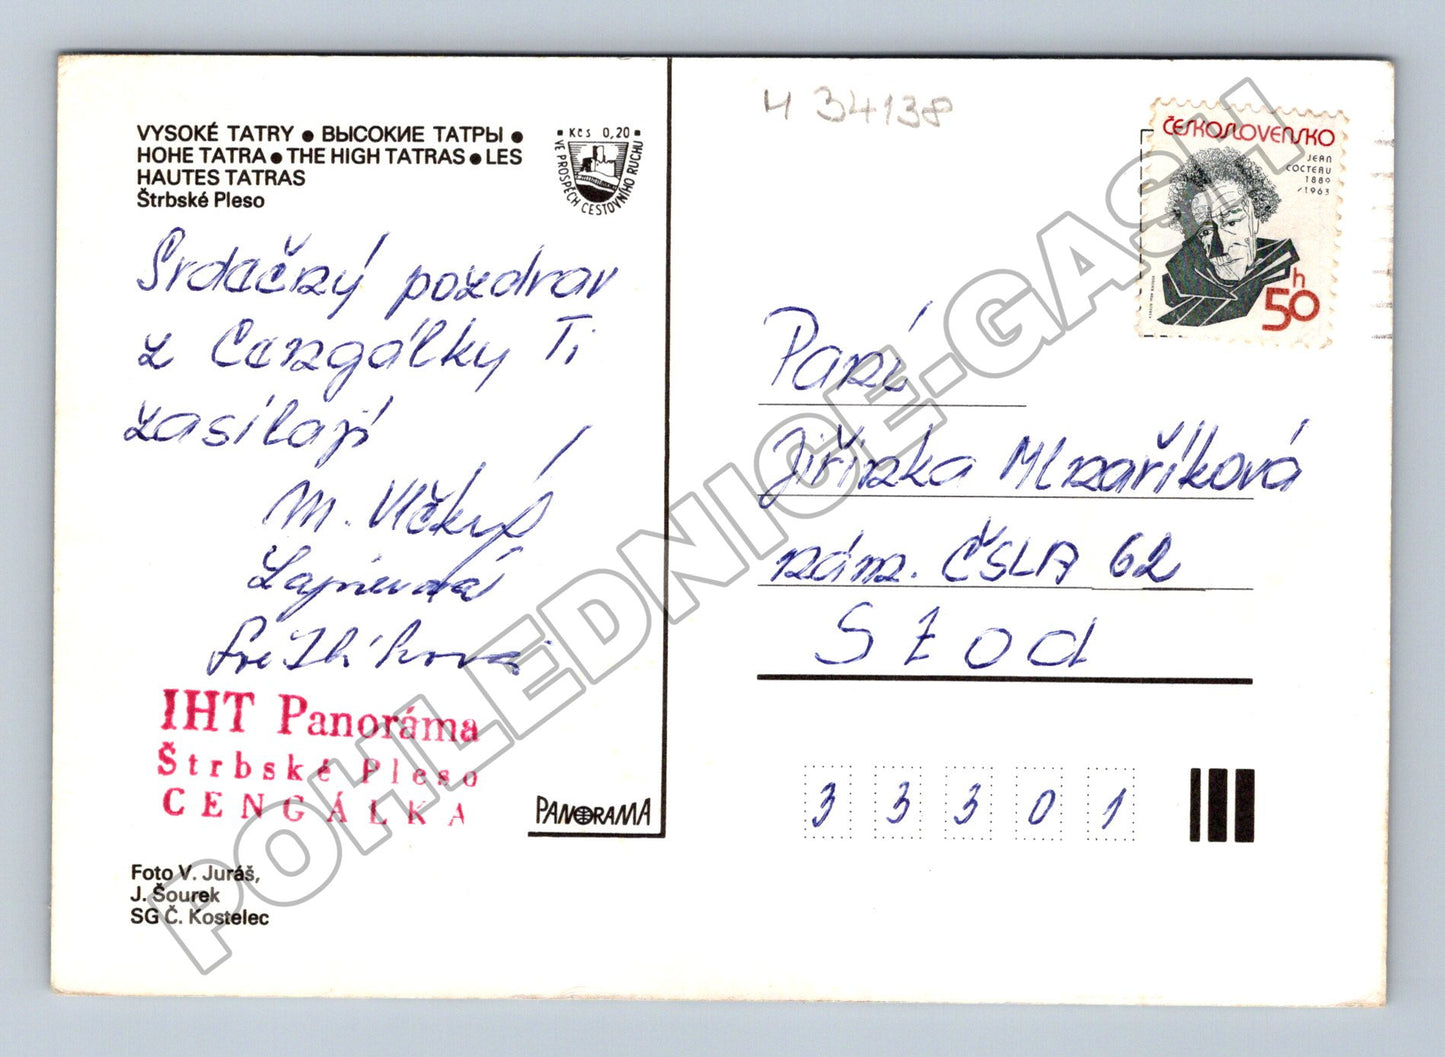 VYSOKÉ TATRY ● ВЫСОКИЕ ТАТРЫ ●
HOHE TATRA ● THE HIGH TATRAS ● LES
HAUTES TATRAS
Štrbské Pleso
Kčs 0,20
VE PROSPĚCH CESTOVNÍHO RUCHU
Srdačný pozdrav
z Cengálky Ti
zasílají
M. Vlčková
IHT Panoráma
Štrbské Pleso
CENGÁLKA
PANORAMA
Foto V. Juráš,
J. Šourek
SG Č. Kostelec
34138
ČESKOSLOVENSKO
JEAN
COCTEAU
1889
/1963
50 h
Paní
Jiřinka Mlnaříková
nám. ČSLA 62
Stod
33301
POHLEDNICE-GASH